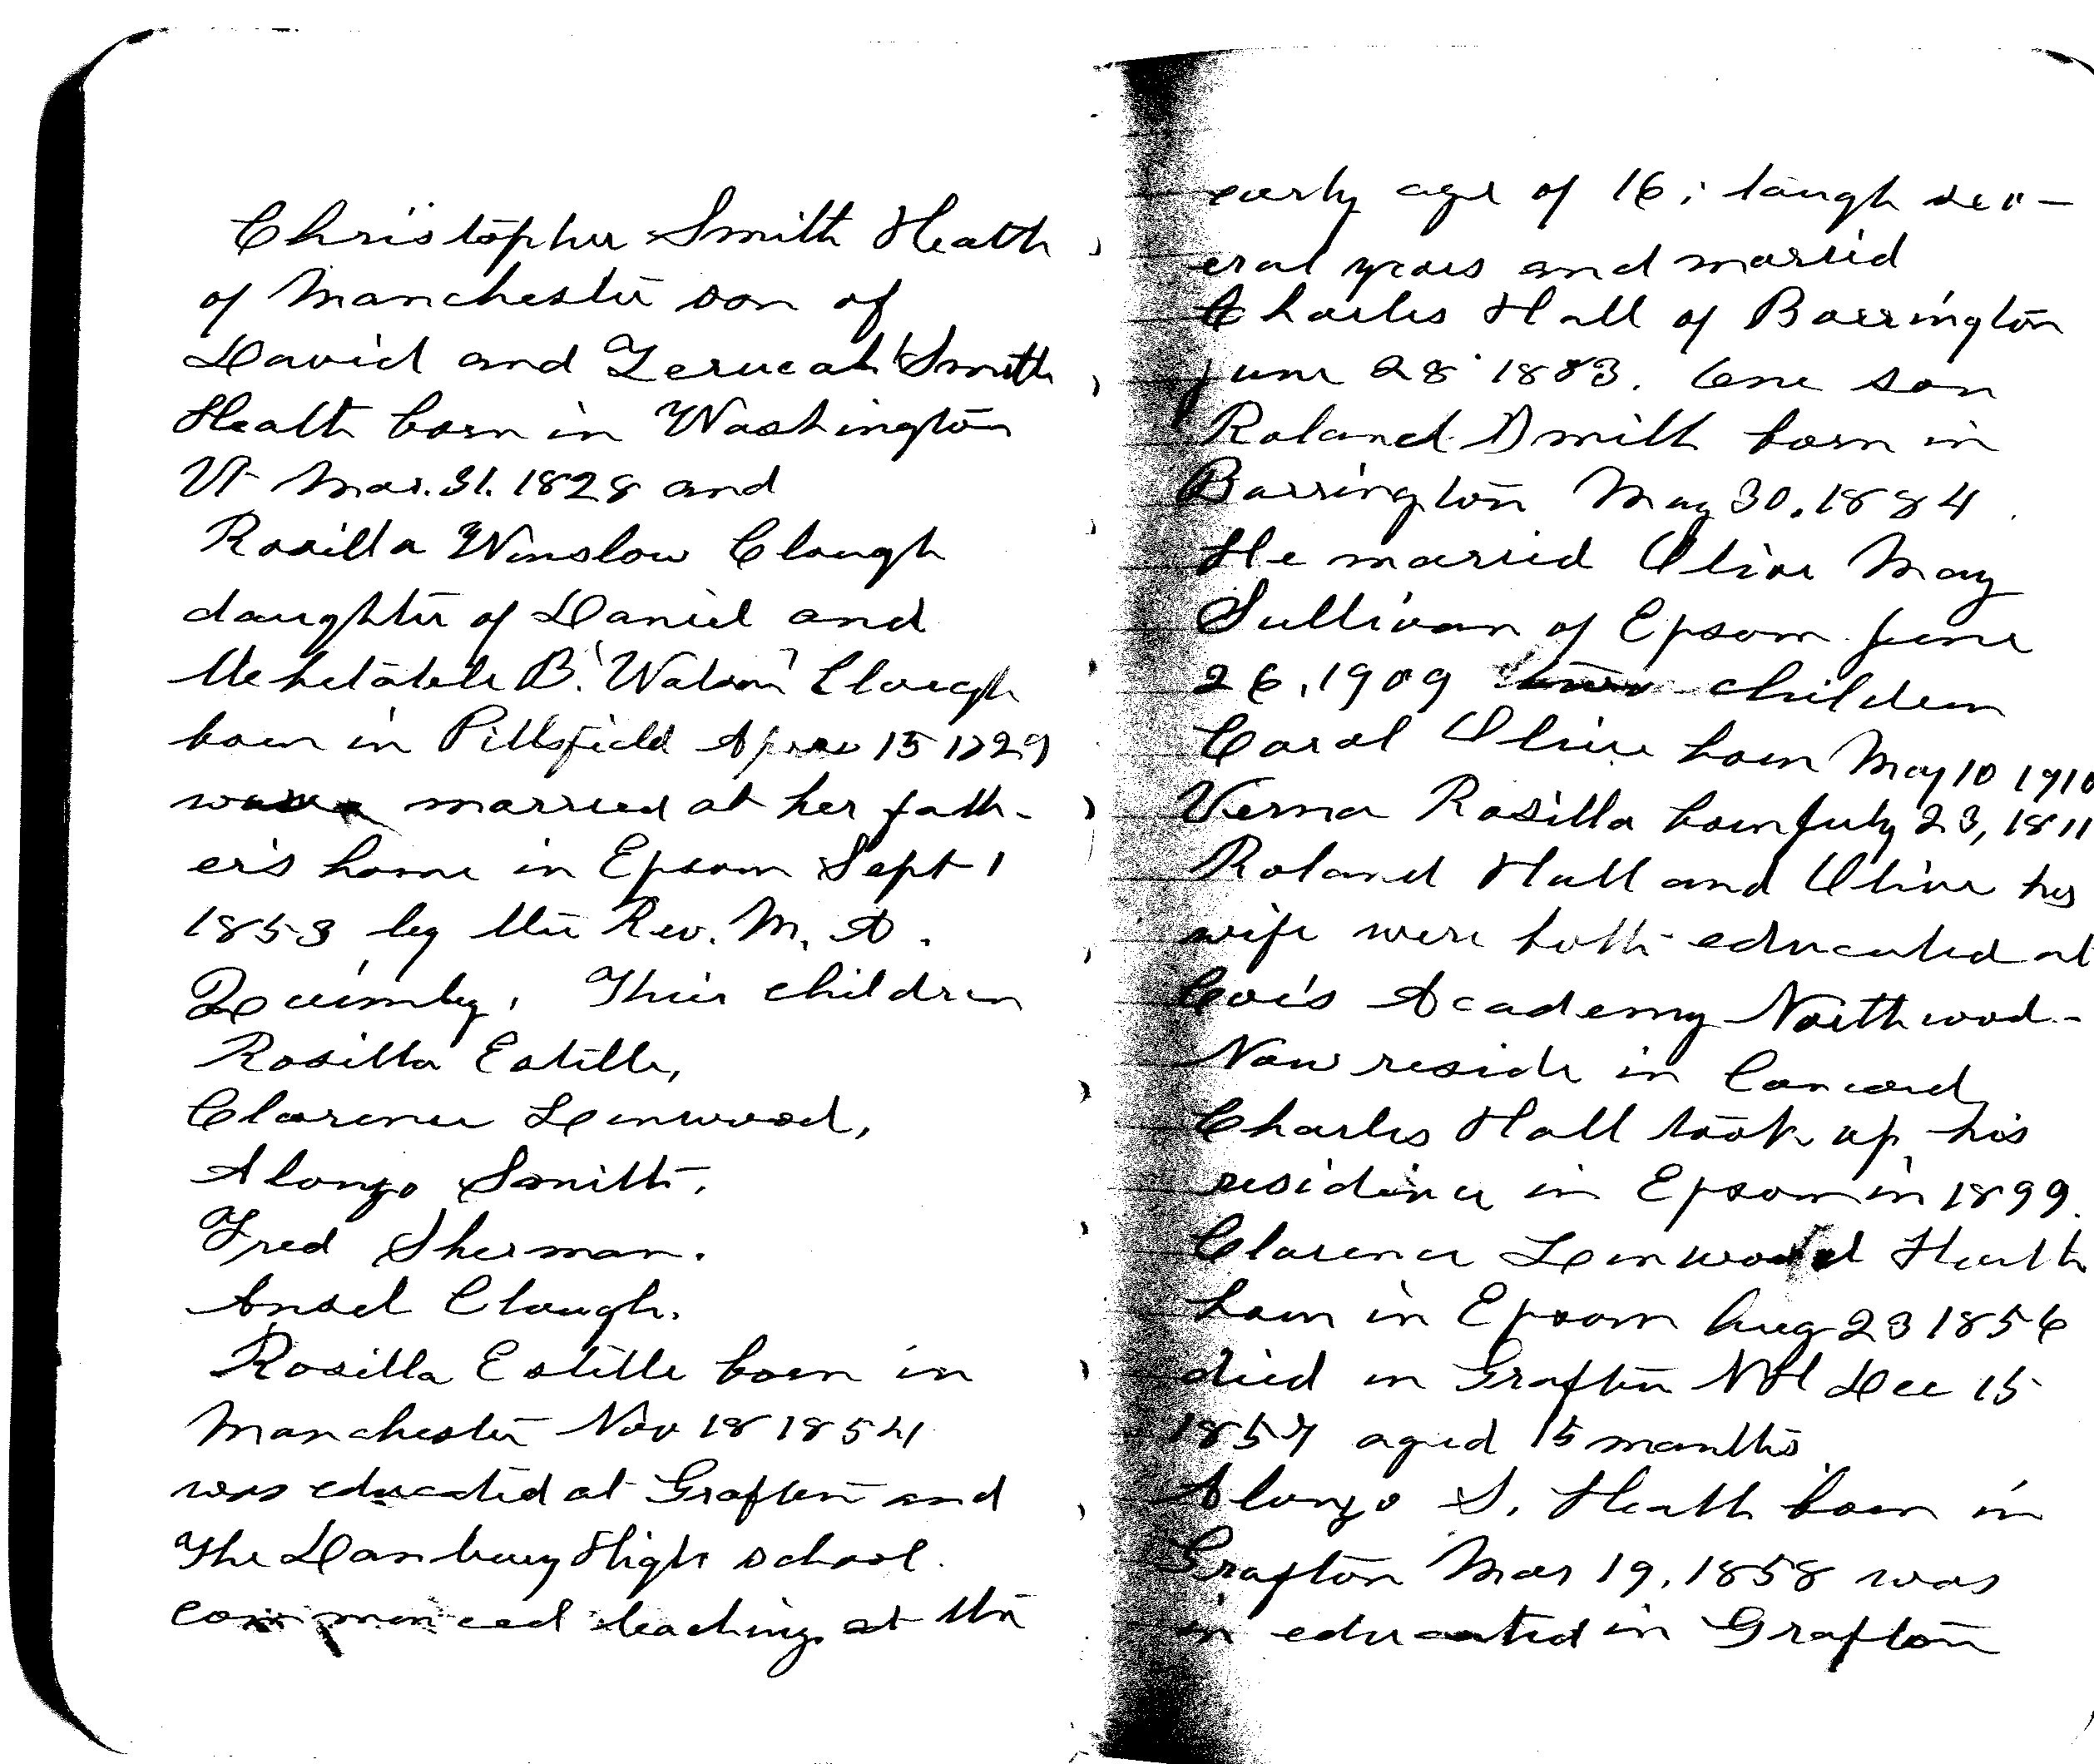 Christopher Smith Heath
of Manchester son of
David and Zerucah (Smith
Heath born in Washington
Vt Mar. 31. 1828 and
Rosilla Winslow Clough
daughter of Daniel and
Mehetable B. (Watson) Clough
born in Pittsfield 15 1829
were married at her fath-
er's home in Epsom Sept 1
1853 by the Rev. M. A.
Quimby. Their children
Rosilla Estille,
Clarence Linwood,
Alonzo Smith.
Fred Sherman.
Ansel Clough.
Rosilla Estille born in
Manchester Nov 18 1854
was educated at Grafton and
The Danbury High school.
commenced teaching at the
early age of 16; taugh sev-
eral years and married
Charles Hall of Barrington
June 28 1883. One son
Roland Smith born in
Barrington May 30, 1884.
He married Olive May
Sullivan of Epsom June
26, 1909 children
Carol Olive born May 10 1910
Verna Rosilla born July 23, 1811
Roland Hall and Olive his
wife were both educated at
Coe's Academy Northwood-
Now reside in Concord
Charles Hall took up his
residence in Epsom in 1899.
Clarence Linwood Heath
born in Epsom Aug 23 1856
died in Grafton NH Dec 15
1857 aged 15 months
Alonzo S. Heath born in
Grafton Mar 19, 1858 was
in educated in Grafton